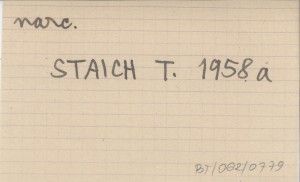 narc.
STAICH T. 1958 a
BT/002/0779